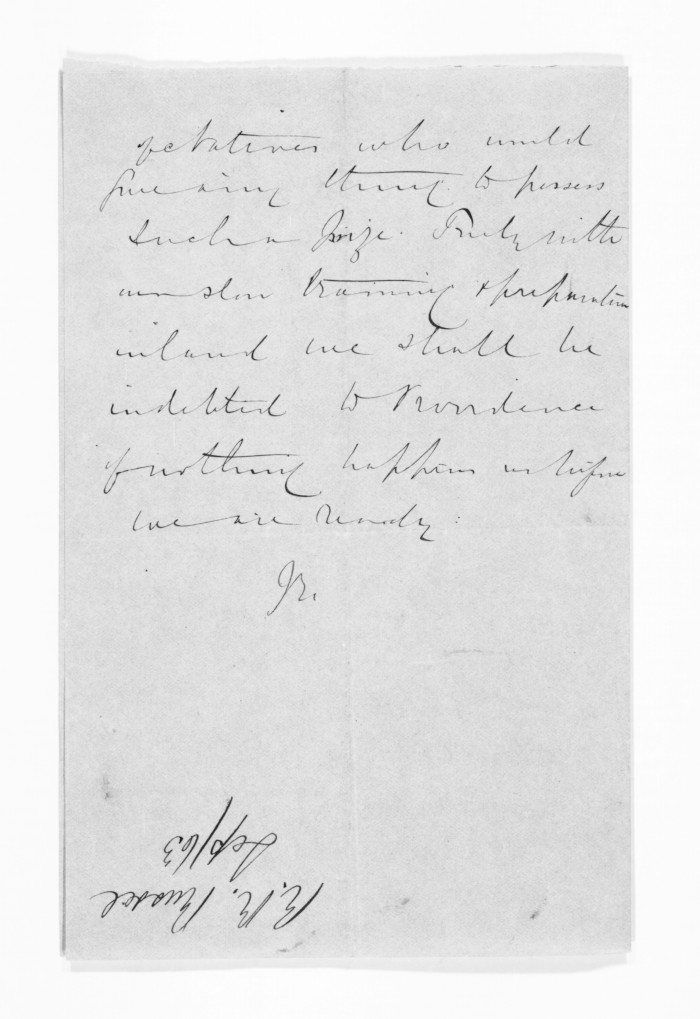 of Natives who would
give any thing to possess
such a prize. Truly with
our slow training & preparation
inland we shall be
indebted to Providence
if nothing happens us before
we are ready.
JR.
Sep/63